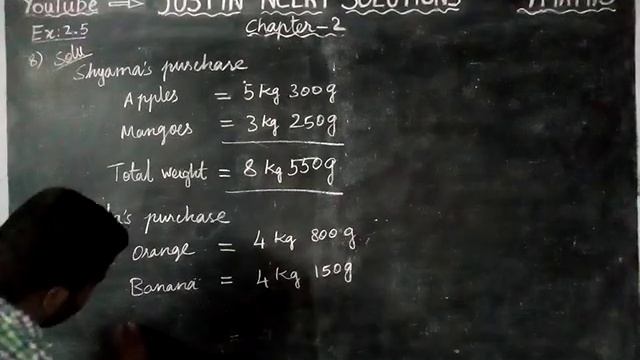 YouTube ⇒ JUSTIN NCERT SOLUTIONS
Chapter-2
Ex: 2.5
8) Soln
Shyama's purchase
Apples = 5 kg 300g
Mangoes = 3 kg 250g
Total weight = 8 kg 550g
purchase
Orange = 4 kg 800g
Banana = 4 kg 150g
=